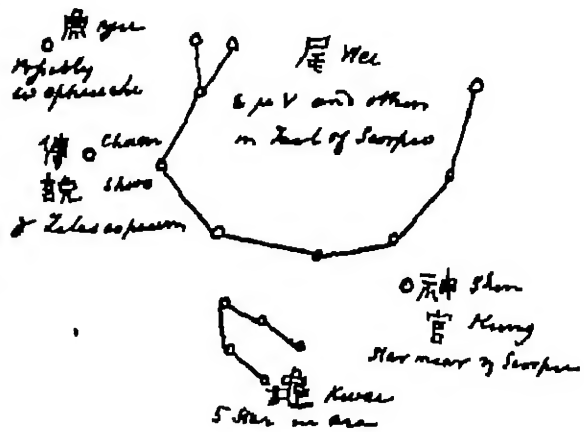 魚 Yu
Possibly
ω Ophiuchi
尾 Wei
ε μ ν and others
in Tail of Scorpio
傅 Chuen
説 Shwo
γ Telescopium
神 Shin
宮 Kung
Star near η Scorpii
龜 Kwei
5 Star in Ara